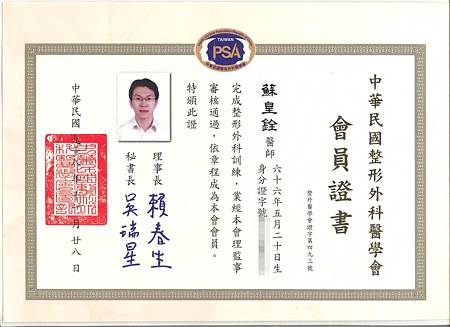 TAIWAN
PSA
中華民國整形外科醫學會
會員證書
整外醫學會證字第四九三號
蘇皇銓醫師 六十六年五月二十日生
身分證字號
完成整形外科訓練，業經本會理監事
審核通過，依章程成為本會會員。
特頒此證
理事長 賴春生
秘書長 吳瑞星
中華民國 月廿八日